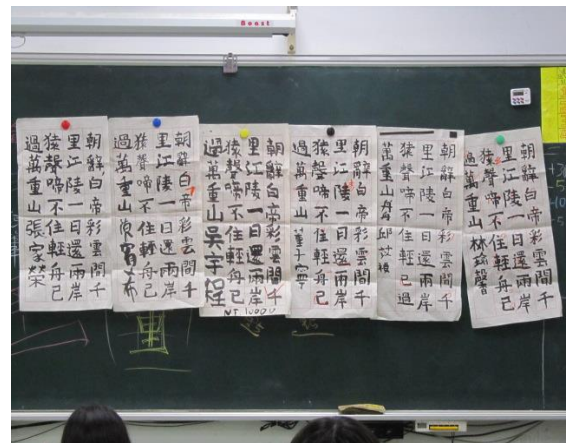 朝辭白帝彩雲間千
里江陵一日還兩岸
猿聲啼不住輕舟已
過萬重山 張家榮
朝辭白帝彩雲間千
里江陵一日還兩岸
猿聲啼不住輕舟已
過萬重山
朝辭白帝彩雲間千
里江陵一日還兩岸
猿聲啼不住輕舟已
過萬重山 吳宇程
朝辭白帝彩雲間千
里江陵一日還兩岸
猿聲啼不住輕舟已
過萬重山
朝辭白帝彩雲間千
里江陵一日還兩岸
猿聲啼不住輕舟已過
萬重山 邱
朝辭白帝彩雲間千
里江陵一日還兩岸
猿聲啼不住輕舟已
過萬重山 林
里